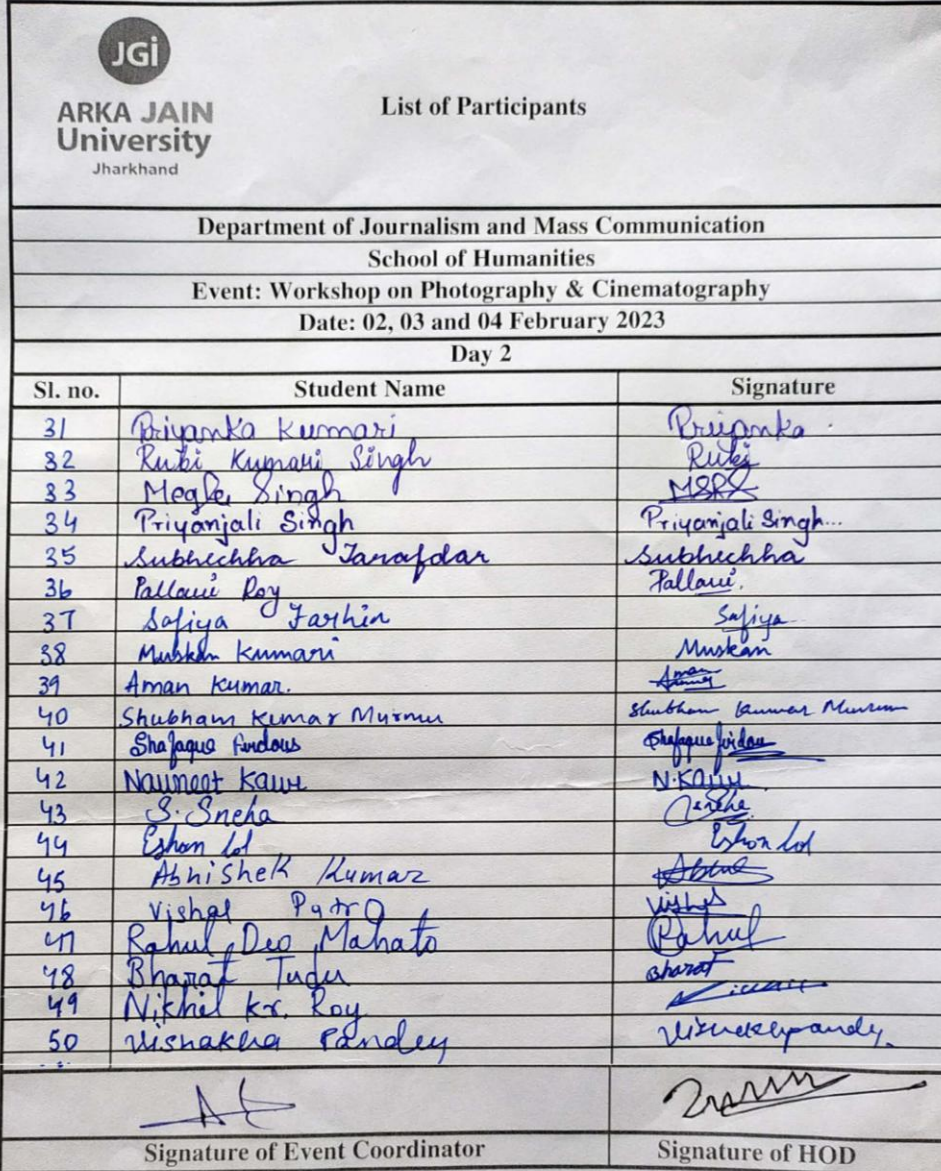 JGi
ARKA JAIN
University
Jharkhand
List of Participants
Department of Journalism and Mass Communication
School of Humanities
Event: Workshop on Photography & Cinematography
Date: 02, 03 and 04 February 2023
Day 2
Sl. no. Student Name Signature
31 Priyanka Kumari Priyanka
32 Rubi Kumari Singh Rubi
33 Singh
34 Priyanjali Singh Priyanjali Singh...
35 Subhechha Tarafdar Subhechha
36 Pallavi Roy Pallavi.
37 Safiya Farhin Safiya
38 Muskan Kumari Muskan
39 Aman Kumar. Aman
40 Shubham Kumar Murmu Shubham Kumar Murmu
41 Shafaque firdous Shafaque firdous
42 Navneet Kaur N.Kaur
43 S. Sneha Sneha
44 Eshan lal Eshan lal
45 Abhishek Kumar
46 Vishal Patro Vishal
47 Rahul Deo Mahato Rahul
48 Bharat Tudu Bharat
49 Nikhil Kr. Roy
50 Vishakha Pandey
Signature of Event Coordinator Signature of HOD